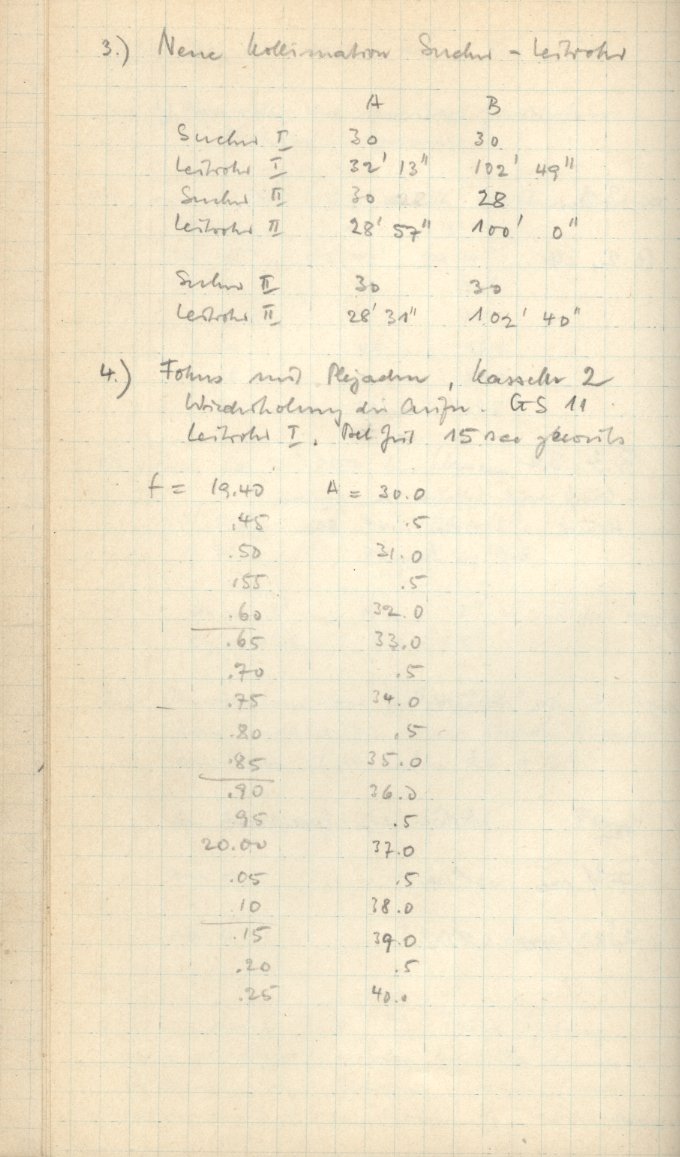 3.) Neue Kollimation Sucher – Leitrohr
A B
Sucher I 30 30
Leitrohr I 32' 13" 102' 49"
Sucher II 30 28
Leitrohr II 28' 57" 100' 0"
Sucher II 30 30
Leitrohr II 28' 31" 102' 40"
4.) Fokus mit Plejaden, Kassette 2
Wiederholung der Aufn. GS 11
Leitrohr I, Bel Zeit 15 sec jeweils
f = 19.40 A = 30.0
.45 .5
.50 31.0
.55 .5
.60 32.0
.65 33.0
.70 .5
.75 34.0
.80 .5
.85 35.0
.90 36.0
95 .5
20.00 37.0
.05 .5
.10 38.0
.15 39.0
.20 .5
.25 40.0